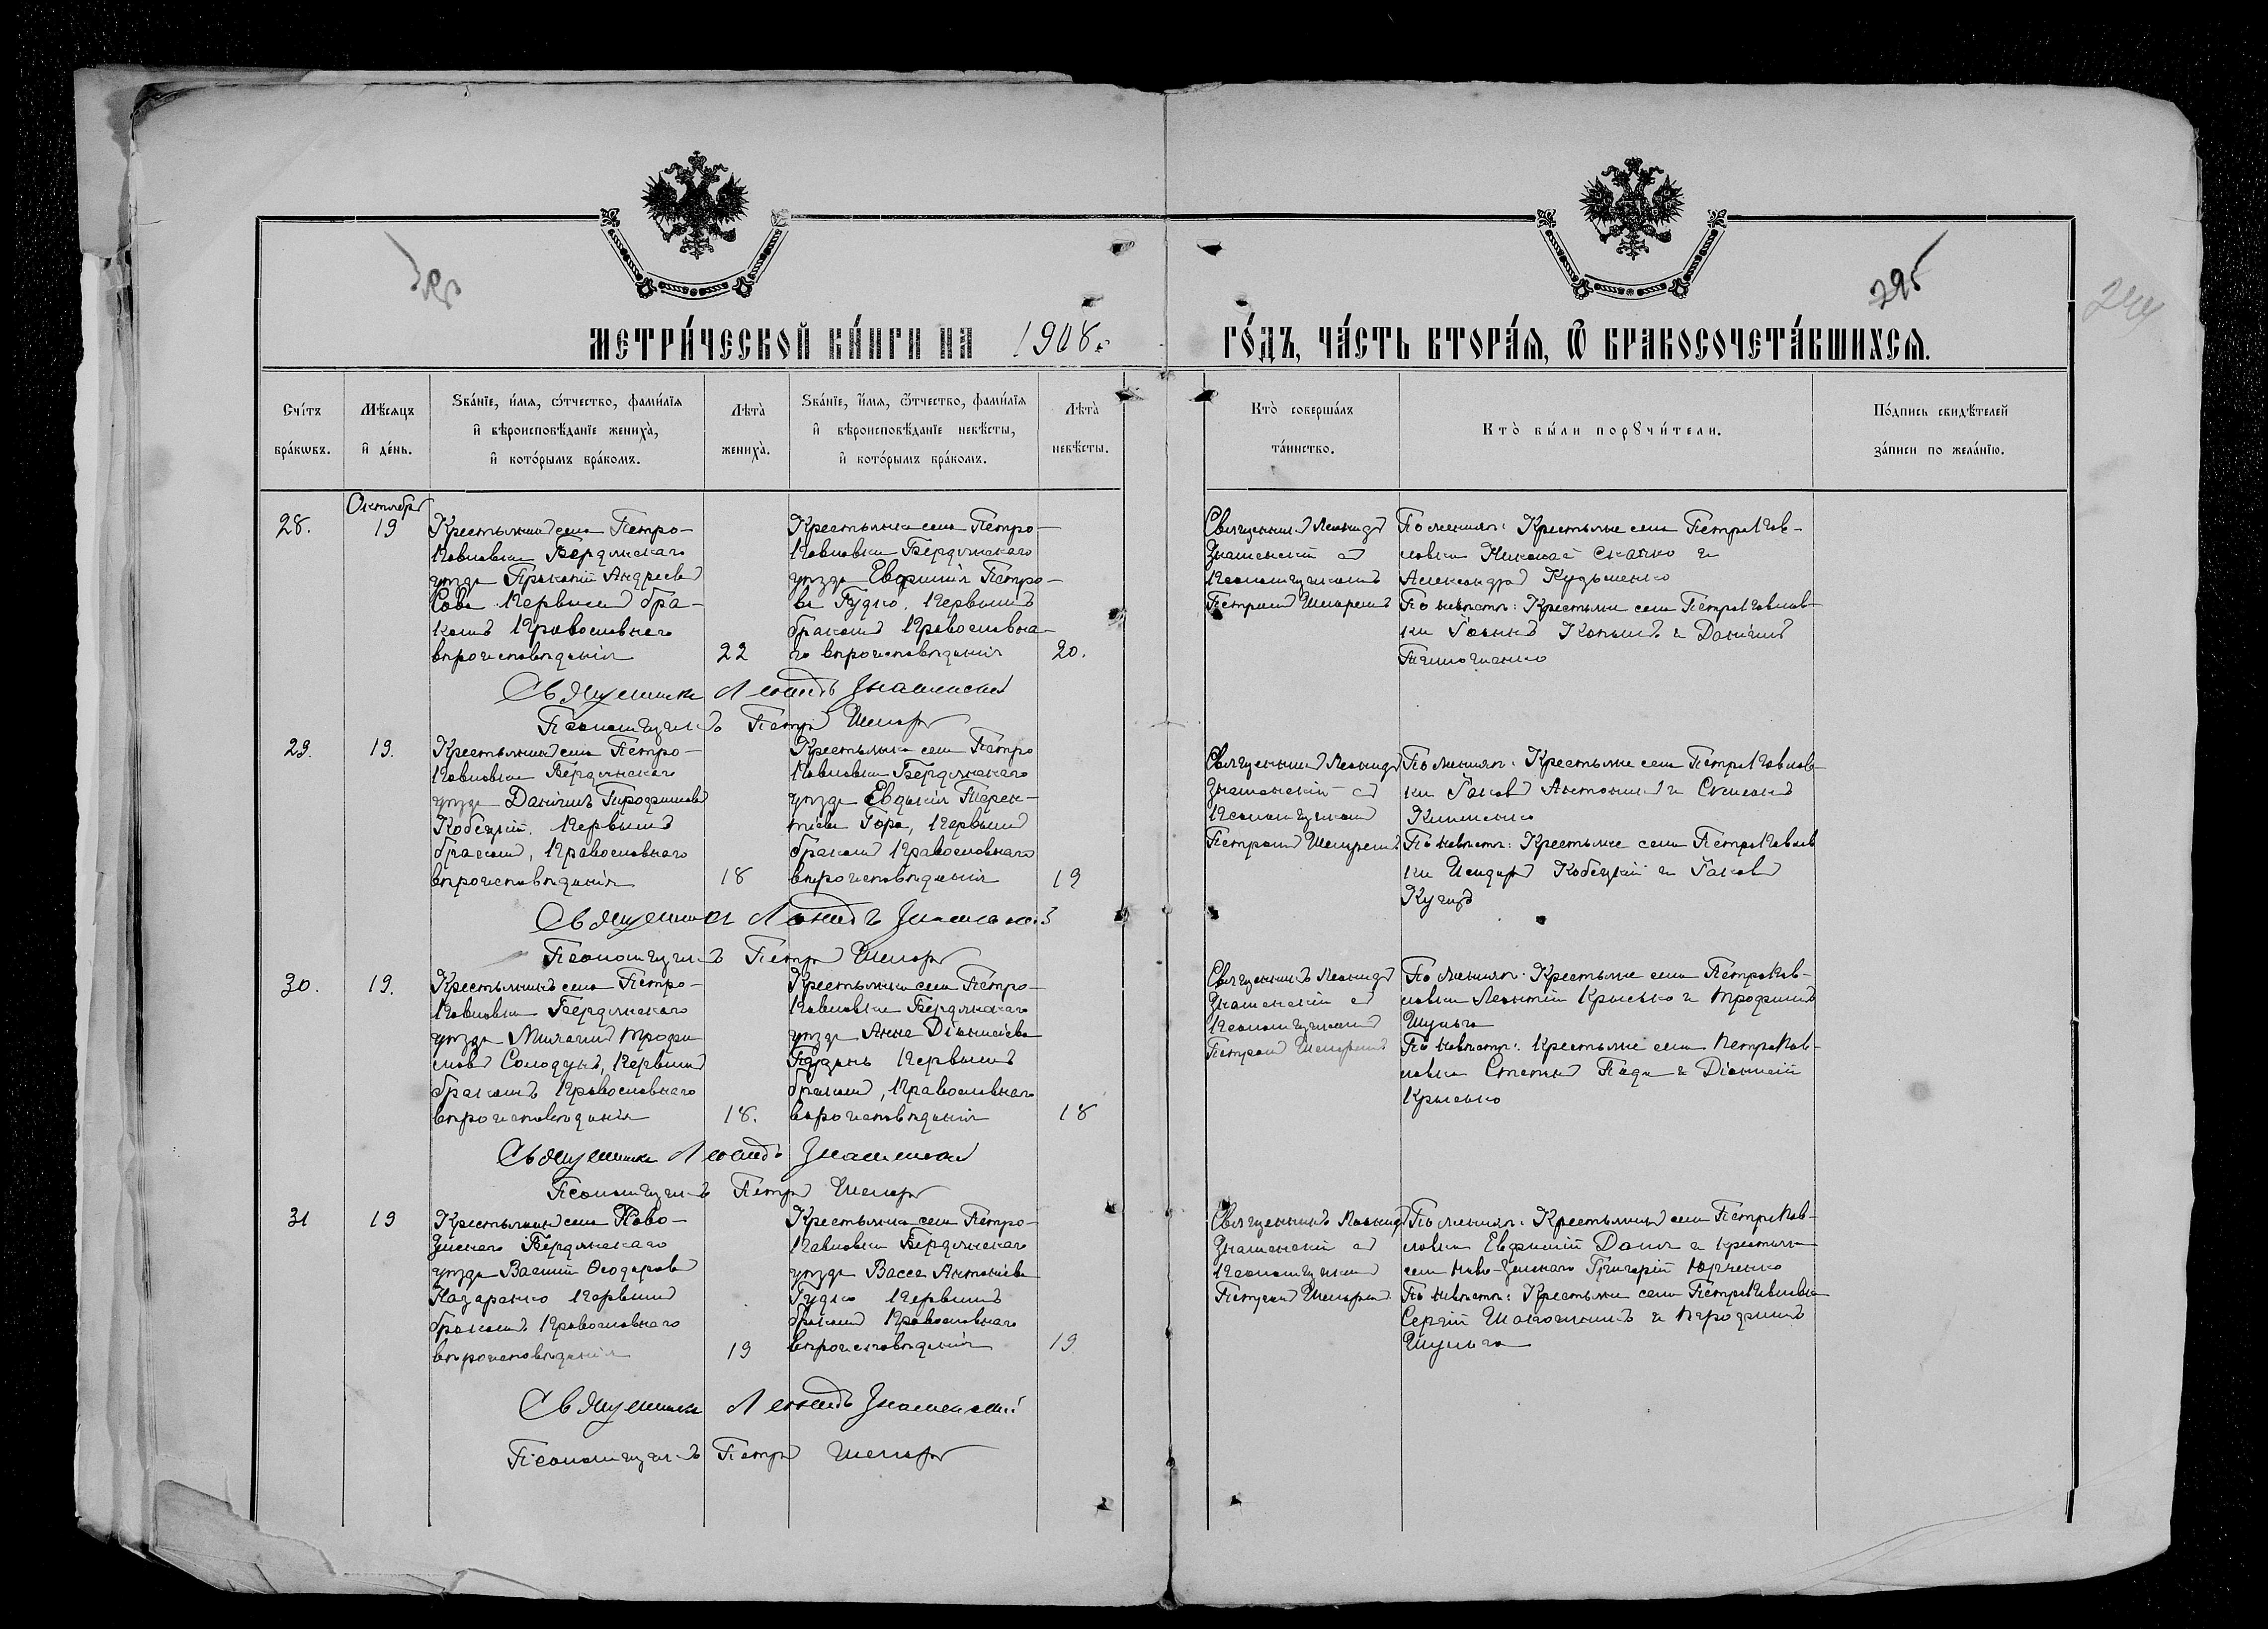 295
МЕТРИ́ЧЕСКОЙ КНИ́ГИ НА 1908 г. ГО́ДЪ, ЧА́СТЬ ВТОРА́Я, Ѽ БРАКОСОЧЕТА́ВШИХСЯ.
Сче́тъ бра́ковъ.
Мѣ́сяцъ и҆ де́нь.
Зва́нїе, и҆́мя, ѻ҆́тчество, фами́лїя и҆ вѣроисповѣ́данїе жениха̀, и҆ кото́рымъ бра́комъ.
Лѣта̀ жениха̀.
Зва́нїе, и҆́мя, ѻ҆́тчество, фами́лїя и҆ вѣроисповѣ́данїе невѣ́сты, и҆ кото́рымъ бра́комъ.
Лѣта̀ невѣ́сты.
Кто̀ соверша́лъ та́инство.
Кто̀ бы́ли порꙋчи́тели.
По́дпись свидѣ́телей за́писи по жела́нїю.
28.
Октября
19
Крестьянинъ села Петро-
Павловки Бердянскаго
уѣзда Прокопій Андреевъ
Сова Первымъ бра-
комъ Православнаго
вѣроисповѣданія
22
Крестьянка села Петро-
Павловки Бердянскаго
уѣзда Евфимія Петро-
ва Гудко. Первымъ
бракомъ Православна-
го вѣроисповѣданія
20.
Священникъ Леонидъ
Знаменскій съ
Псаломщикомъ
Петромъ
По женихѣ: Крестьяне села ПетроПав-
ловки Николай Скачко и
Александръ Кузьменко
По невѣстѣ: Крестьяне села ПетроПавлов-
ки Іоаннъ и Даніилъ
Священникъ Леонидъ Знаменскій
Псаломщикъ Петръ
29.
19.
Крестьянинъ села Петро-
Павловки Бердянскаго
уѣзда Даніилъ Трофимовъ
Кобецкій. Первымъ
бракомъ, Православнаго
вѣроисповѣданія
18
Крестьянка села Петро
Павловки Бердянскаго
уѣзда Евдокія Терен-
тіева Гора, Первымъ
бракомъ Православнаго
вѣроисповѣданія
19
Священникъ Леонидъ
Знаменскій съ
Псаломщикомъ
Петромъ
По женихѣ: Крестьяне села ПетроПавлов-
ки Іаковъ и
Клименко
По невѣстѣ: Крестьяне села ПетроПавлов
ки Исидоръ Кобецкій и Іаковъ
Священникъ Леонидъ Знаменскій
Псаломщикъ Петръ
30.
19.
Крестьянинъ села Петро-
Павловки Бердянскаго
уѣзда Михаилъ Трофи
мовъ Солодунъ, Первымъ
бракомъ Православнаго
вѣроисповѣданія
18.
Крестьянка села Петро-
Павловки Бердянскаго
уѣзда Анна Діонисіева
Первымъ
бракомъ, Православнаго
вѣроисповѣданія
18
Священникъ Леонидъ
Знаменскій съ
Псаломщикомъ
Петромъ
По женихѣ: Крестьяне села ПетроПав-
ловки Леонтій Крысько и Трофимъ
Шульга
По невѣстѣ: Крестьяне села ПетроПав-
ловки и Діонисій
Крысько
Священникъ Леонидъ Знаменскій
Псаломщикъ Петръ
31
19
Крестьянинъ села Ново-
Бердянскаго
уѣзда Василій Ѳеодоровъ
Назаренко Первымъ
бракомъ Православнаго
вѣроисповѣданія
19
Крестьянка села Петро-
Павловки Бердянскаго
уѣзда Васса Антоніева
Гудко Первымъ
бракомъ Православнаго
вѣроисповѣданія
19
Священникъ Леонидъ
Знаменскій съ
Псаломщикомъ
Петромъ
По женихѣ: Крестьянинъ села ПетроПав-
ловки Евфимій и
села Григорій Юрченко
По невѣстѣ: Крестьяне села ПетроПавловки
Сергій и
Шульга
Священникъ Леонидъ Знаменскій
Псаломщикъ Петръ